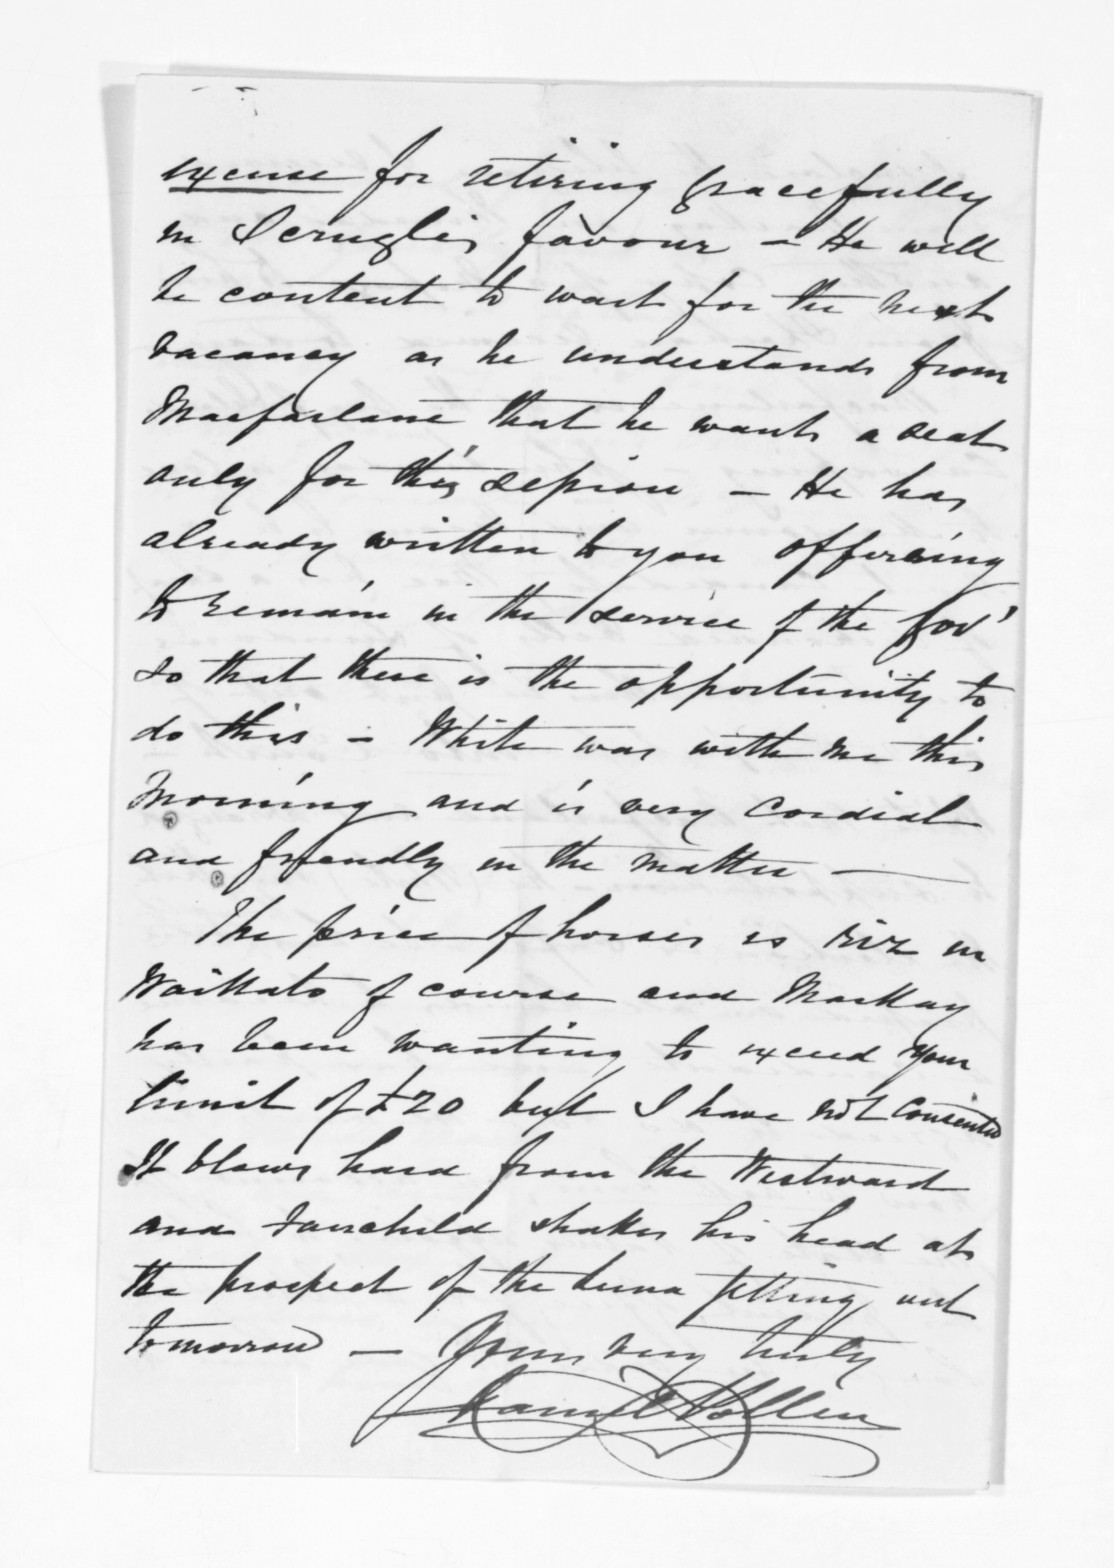 excuse for retiring gracefully
in Scruglis favour - He will
be content to wait for the next
vacancy as he understands from
Macfarlane that he wants a seat
only for this session - He has
already written to you offering
to remain in the service of the Govt
so that there is the opportunity to
do this - White was with me this
morning and is very cordial
and friendly in the matter -
The price of horses is riz in
Waikato of course and Mackay
has been wanting to exceed your
limit of £20 but I have not consented
It blows hard from the Westward
and Fairchild shakes his head at
the prospect of the Luna getting out
tomorrow - Yours very truly
Daniel Pollen